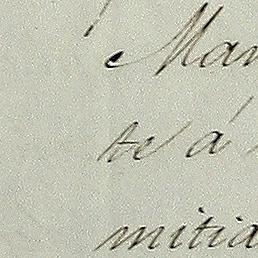 Man
te á
mitia